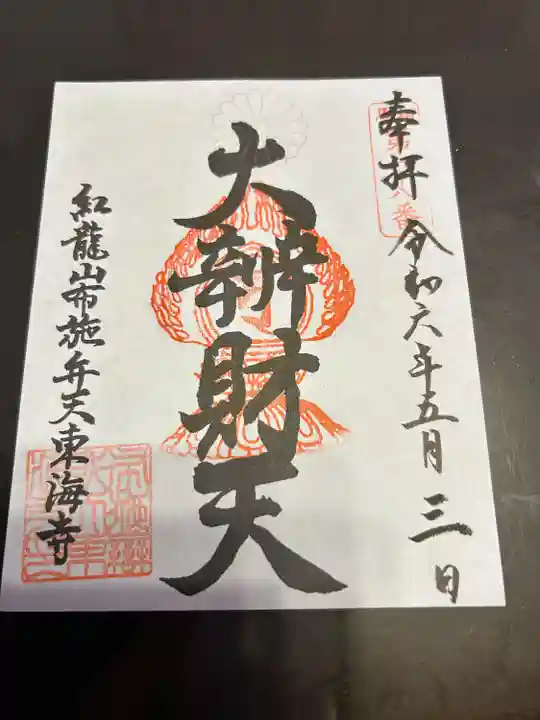 奉拝
令和六年五月三日
大辨財天
紅龍山布施弁天東海寺